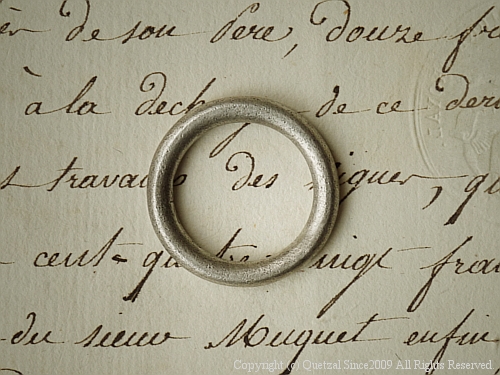 de son Pere, douze fra
à la dech de ce der
travau des iguer, qu
cent-quatre-vingt fran
du sieur Muguet enfin
Copyright (c) Quetzal Since2009 All Rights Reserved